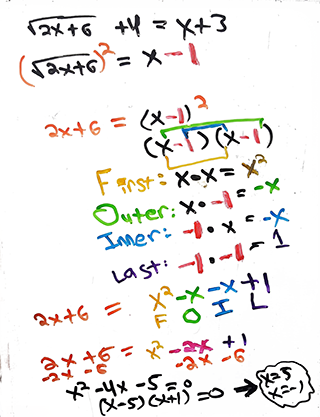 √2x+6 +4 = x+3
(√2x+6)² = x-1
2x+6 = (x-1)²
(x-1)(x-1)
First: x•x = x²
Outer: x•-1 = -x
Inner: -1•x = -x
Last: -1•-1 = 1
2x+6 = x²-x-x+1
F O I L
2x+6 = x²-2x+1
-2x-6 -2x-6
x²-4x-5=0
(x-5)(x+1)=0 → x=5
x=-1